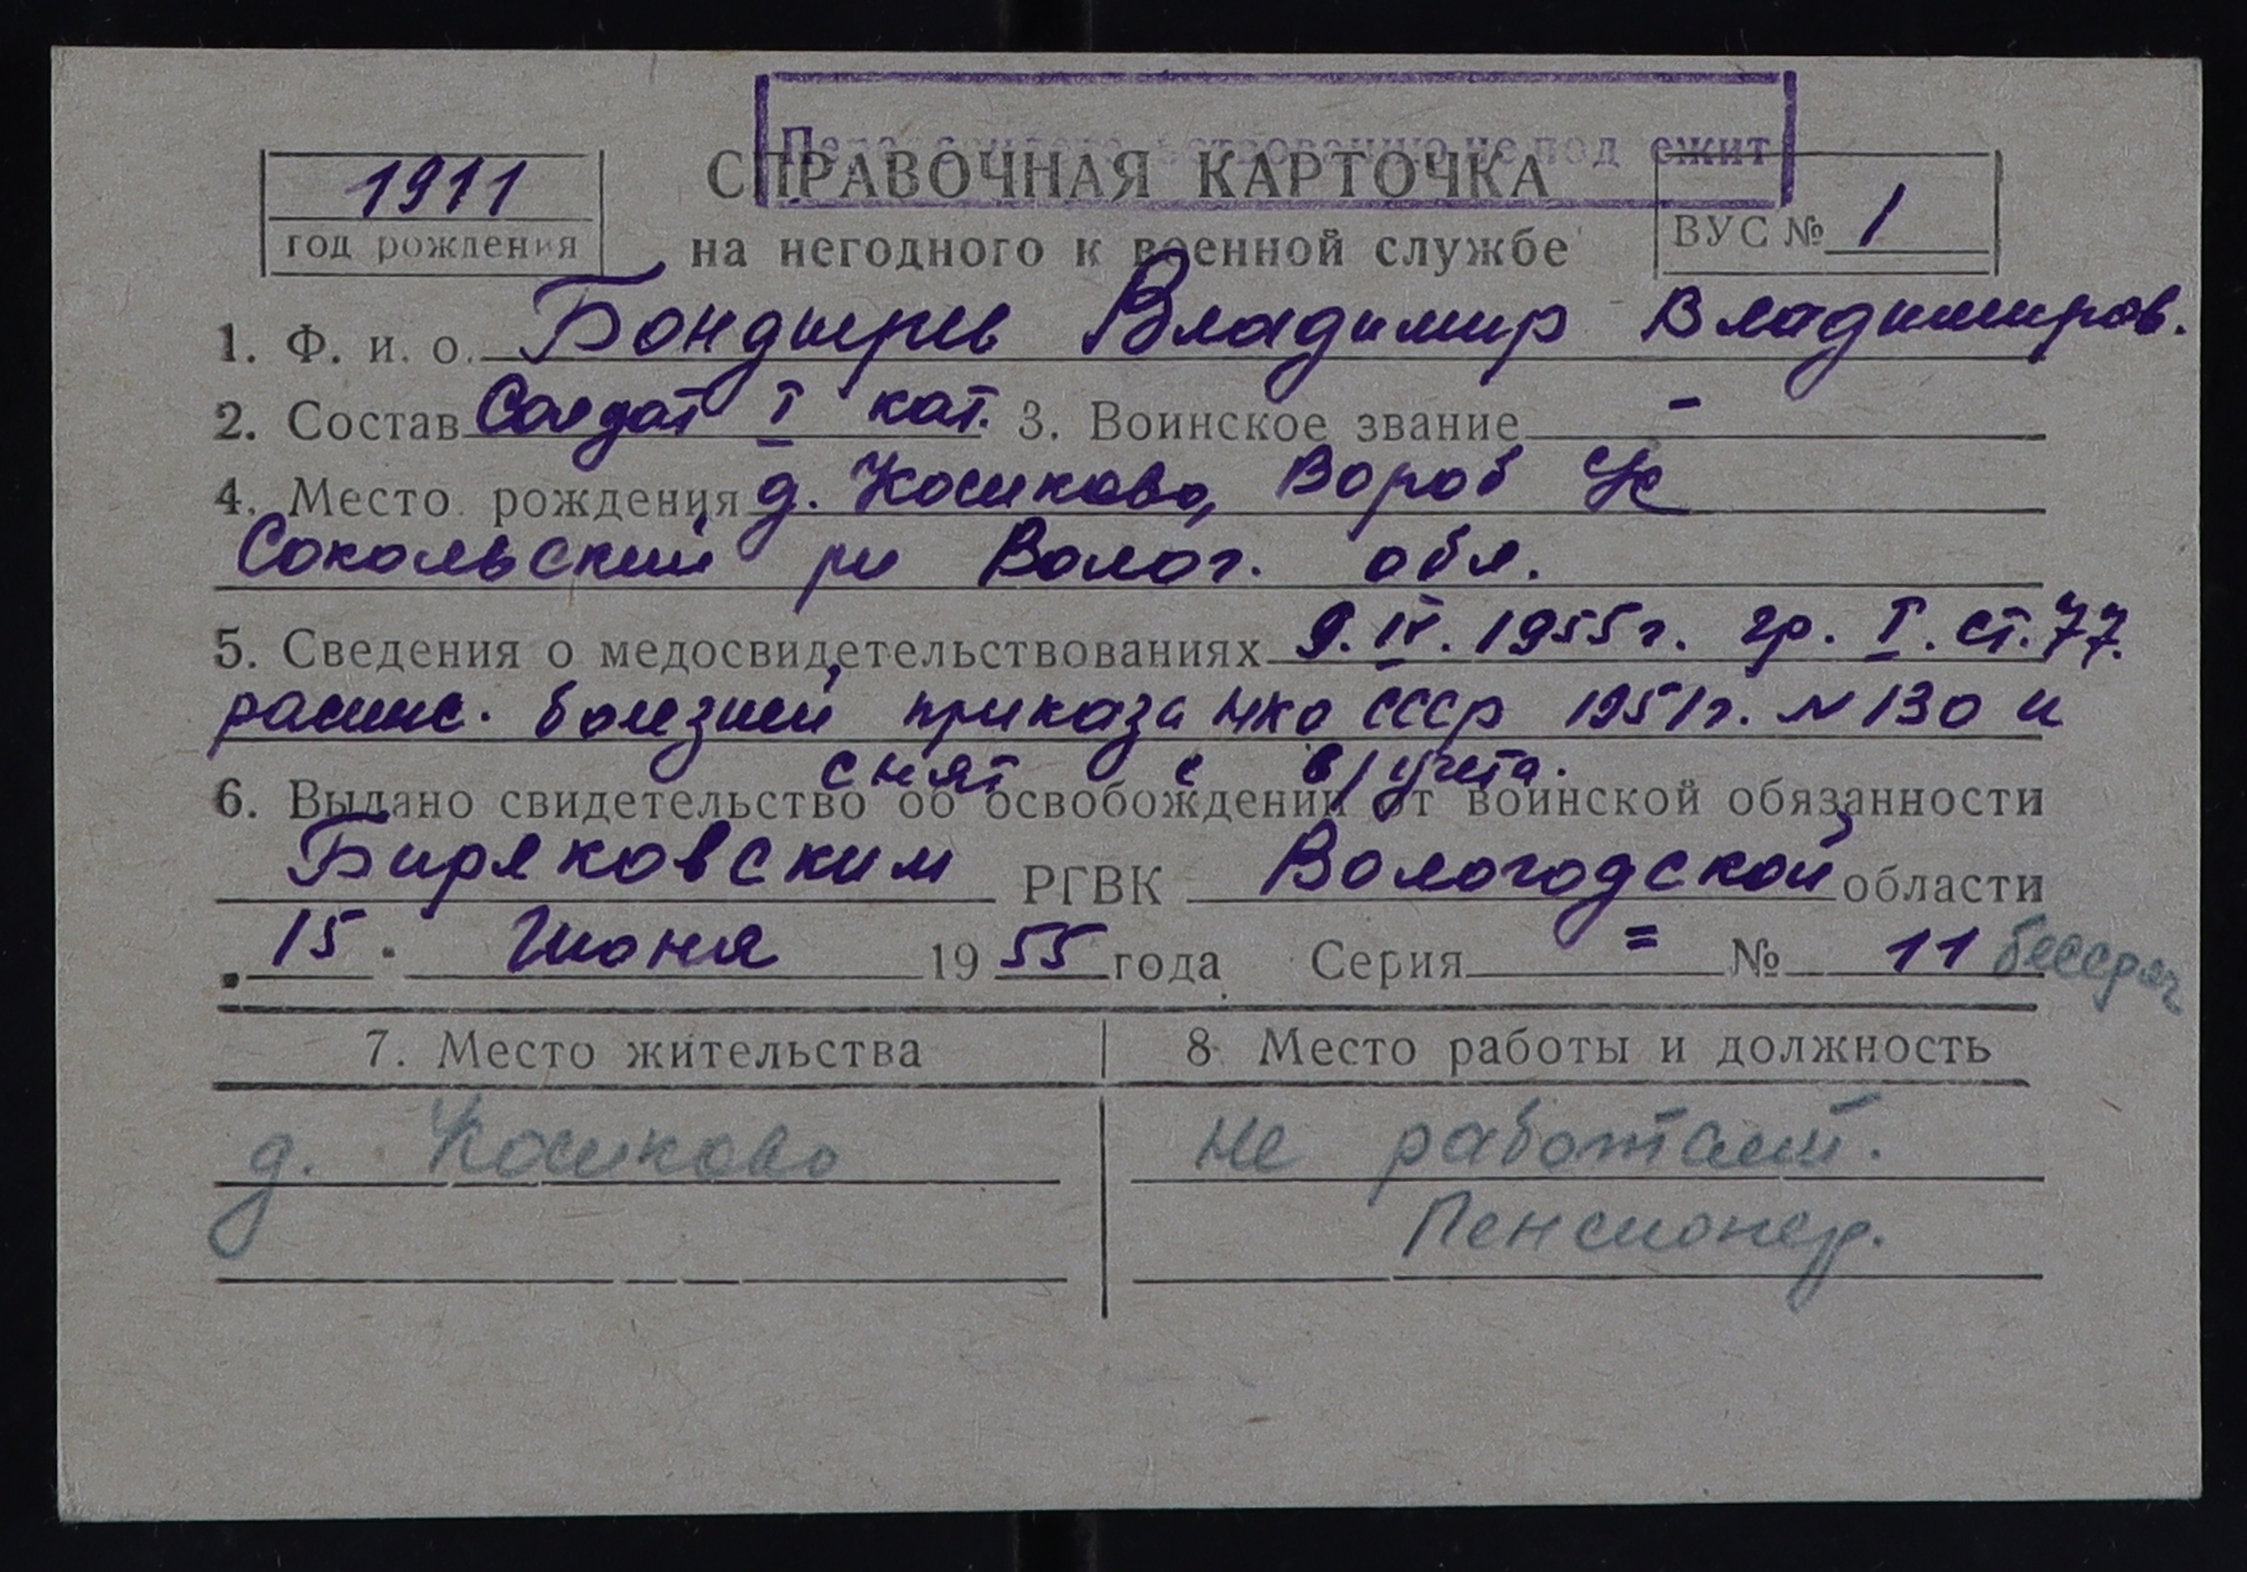 не под ежит
1911
год рождения
СПРАВОЧНАЯ КАРТОЧКА
на негодного к военной службе
ВУС № 1
1. Ф. и. о. Бондырев Владимир Владимиров.
2. Состав Солдат I кат. 3. Воинское звание -
4. Место рождения д. Кошково, Вороб
Сокольский рн Волог. обл.
5. Сведения о медосвидетельствованиях 9.IV.1955г. гр. I. ст. 77.
распис. болезней приказа СССР 1951г. № 130 и
снят с в/учета.
6. Выдано свидетельство об освобождении от воинской обязанности
Биряковским РГВК Вологодской области
15. Июня 1955 года Серия = № 11 бессроч
7. Место жительства 8. Место работы и должность
д. Кошково не работает.
Пенсионер.